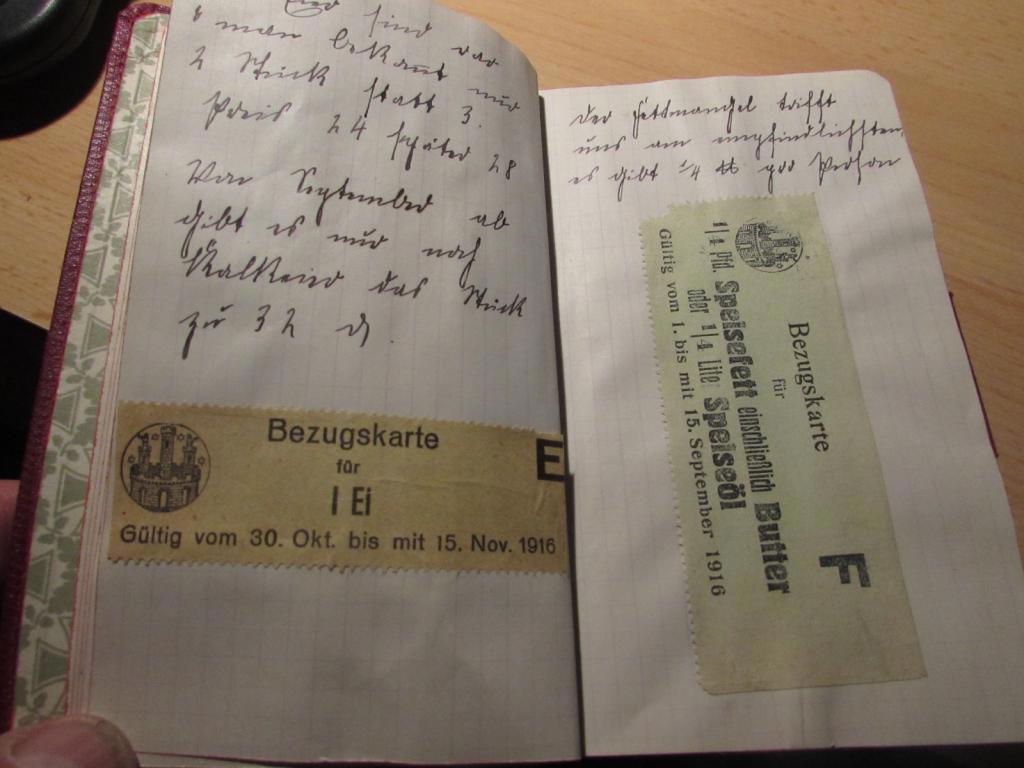 Eier sind rar
man bekamt nur
2 Stück statt 3.
Preis 24 später 28
Von September ab
gibt es nur noch
Kalkeier das Stück
zu 32 d
Bezugskarte
für
1 Ei
Gültig vom 30. Okt. bis mit 15. Nov. 1916
E
Der Fettmangel trifft
uns am empfindlichsten,
es gibt 1/4 ℔ pro Person
Bezugskarte
für
1/4 Pfd. Speisefett einschließlich Butter
oder 1/4 Liter Speiseöl
Gültig vom 1. bis mit 15. September 1916
F